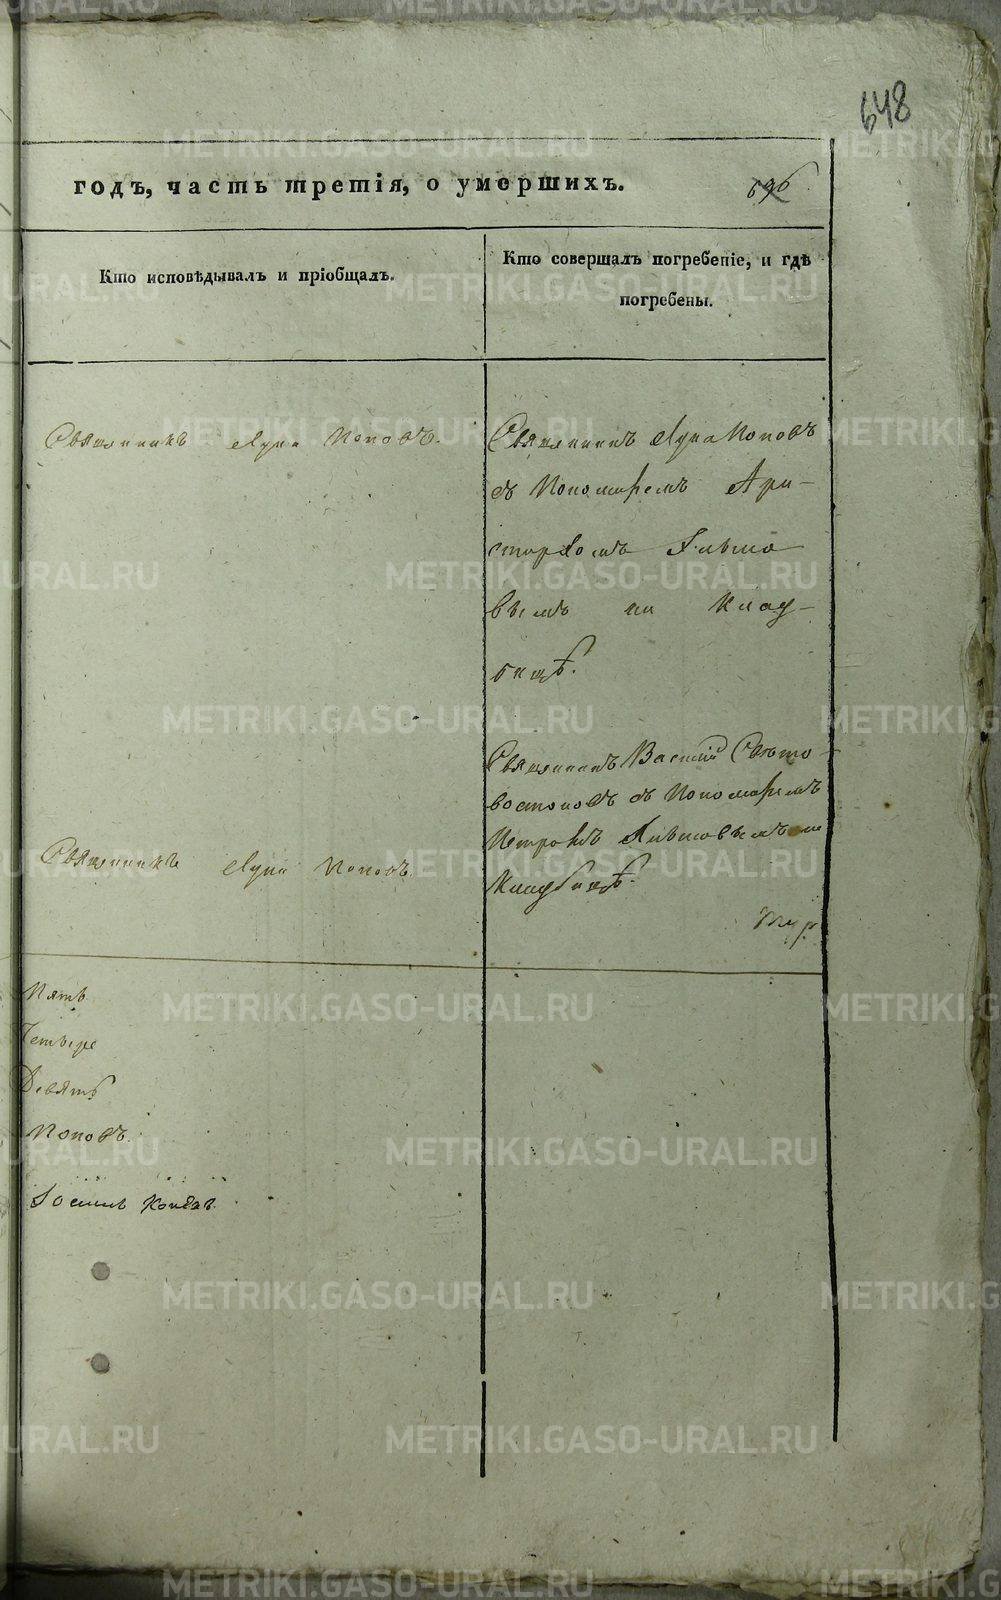 648
годъ, часть третія, о умершихъ.
696
Кто исповѣдывалъ и пріобщалъ.
Кто совершалъ погребеніе, и гдѣ
погребены.
Священникъ Лука Поповъ.
Священникъ Лука Поповъ
съ Пономаремъ Ари-
стархомъ
вымъ на клад-
бищѣ.
Священникъ Лука Поповъ.
Священникъ Василій Свѣто-
востоковъ съ Пономаремъ
Петромъ на
Кладбищѣ.
Пять
Четыре
Девять
Поповъ.
METRIKI.GASO-URAL.RU